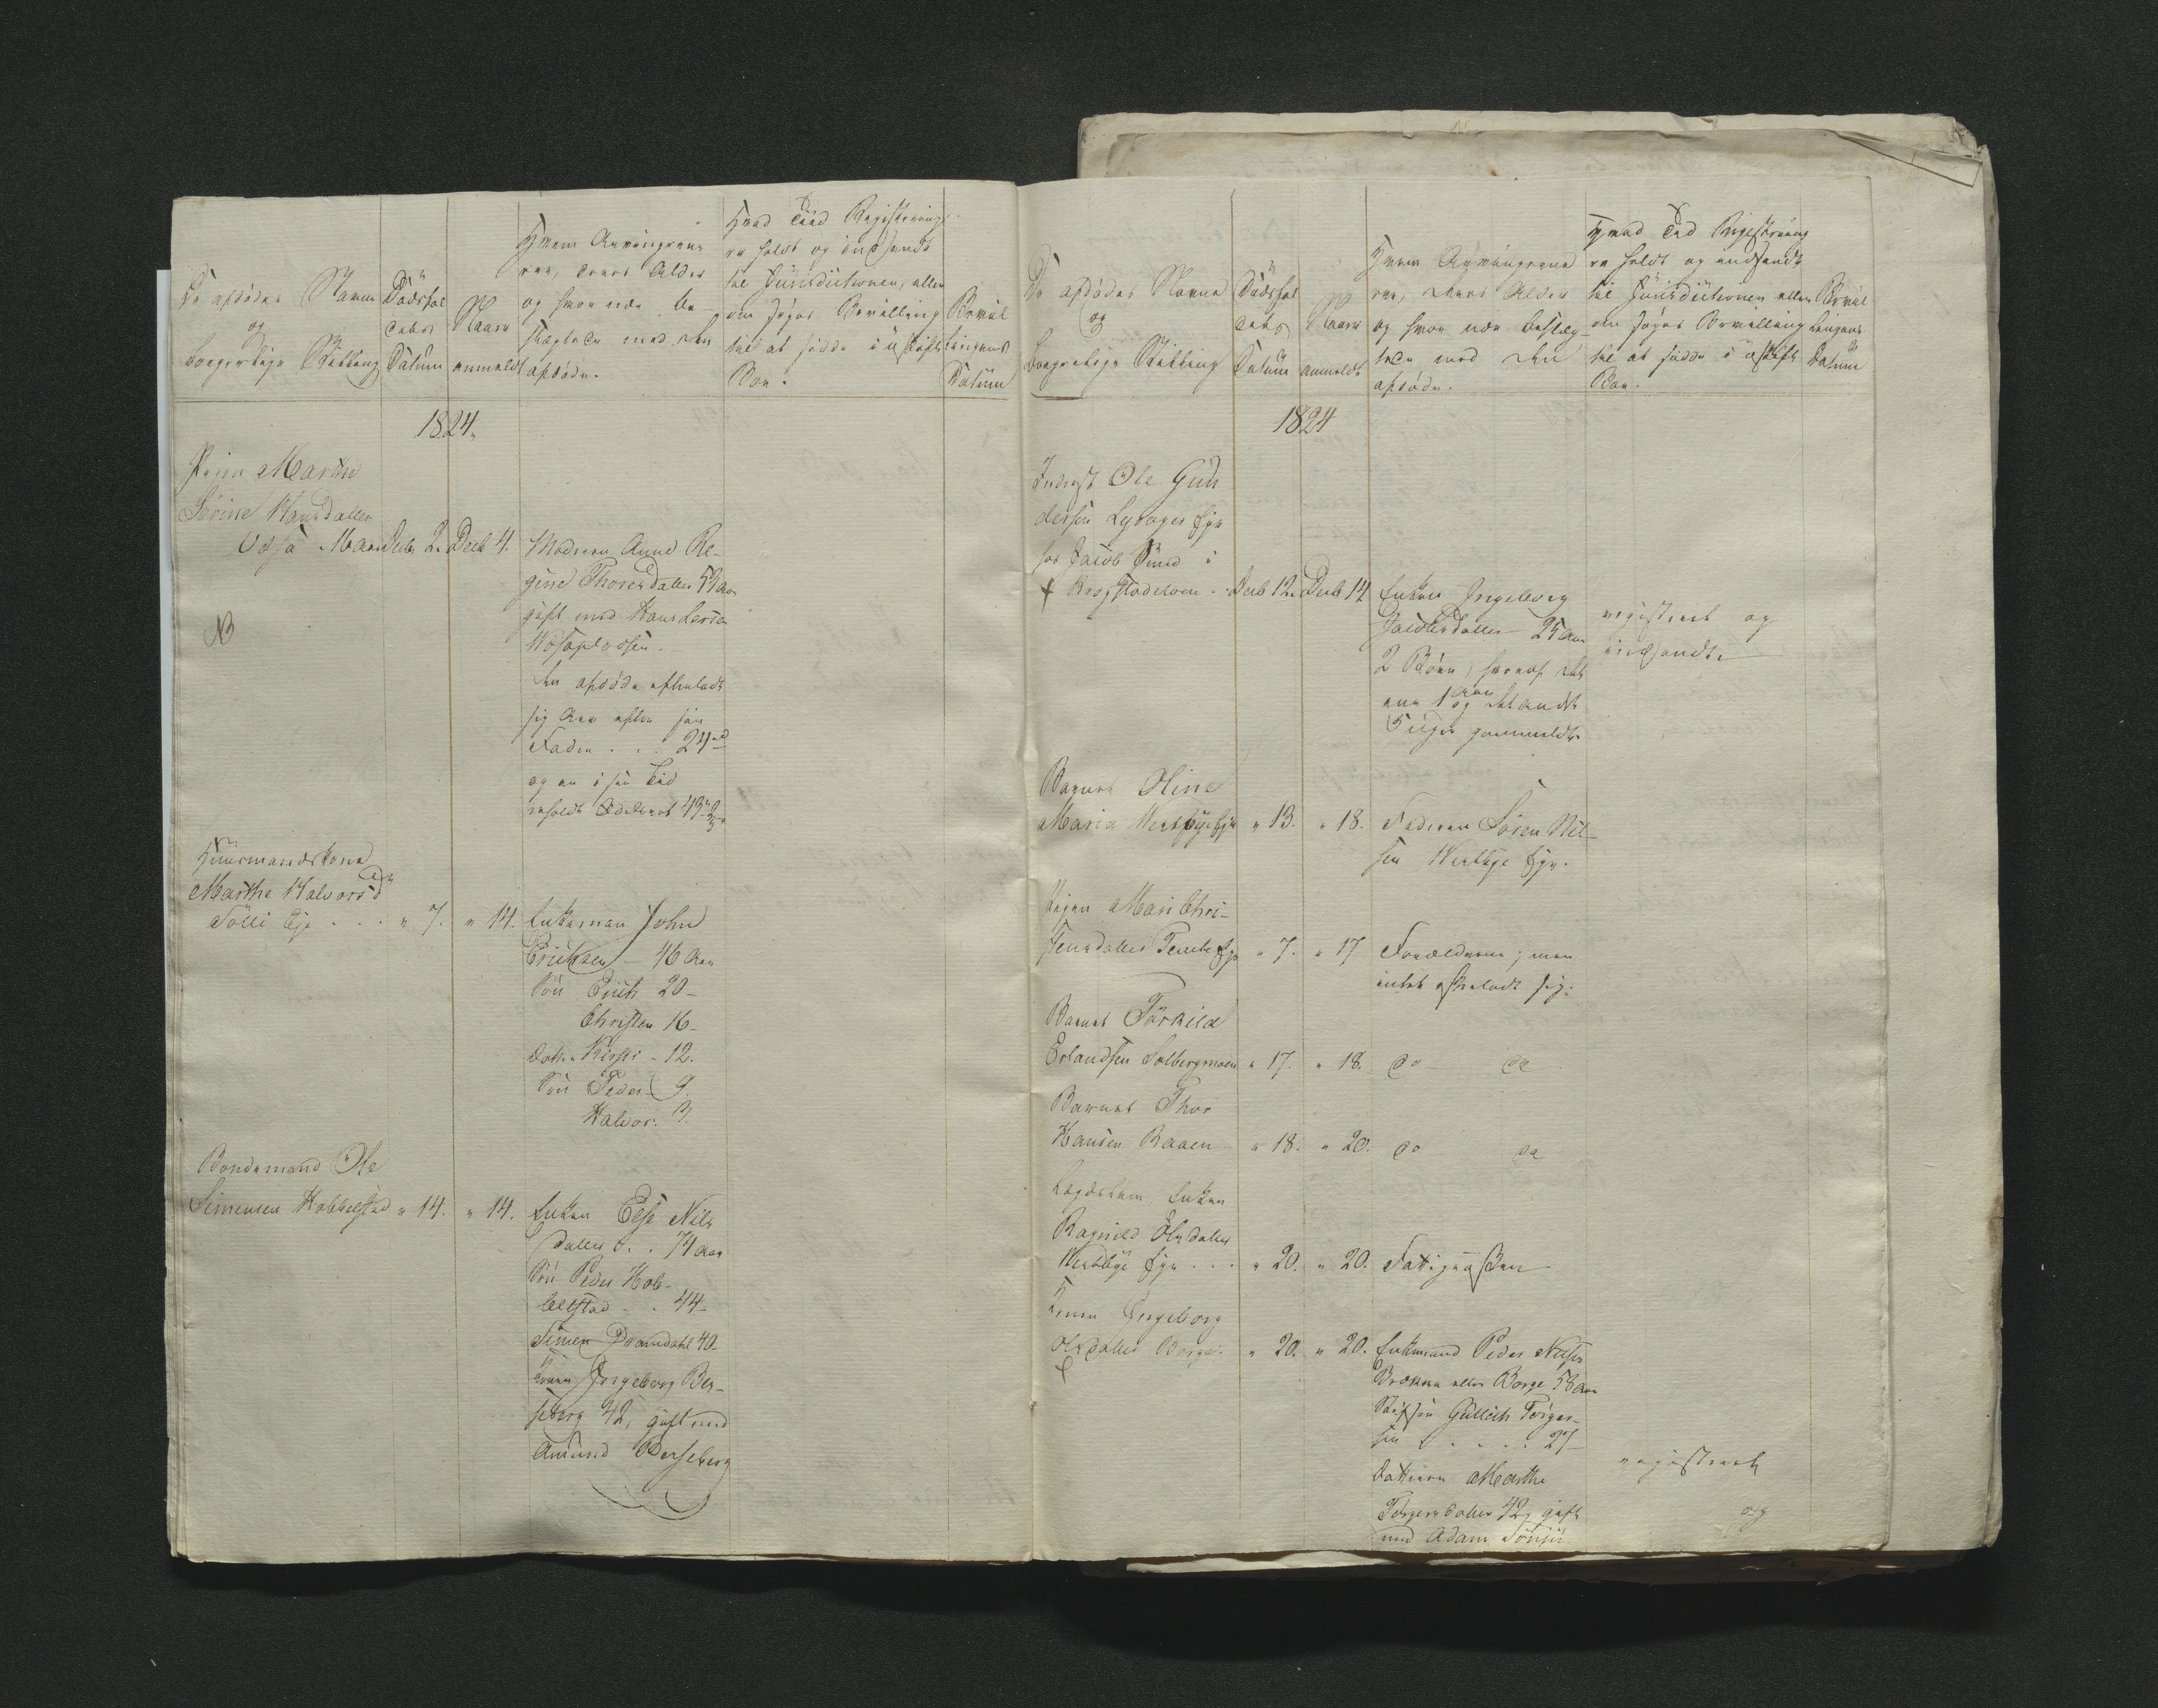 De afdødes Navne
og
borgerlige Stilling
Dødsfal
dets
Datum
Naar
anmeldt
Hvem Arvingerne
ere, deres Alder
og hvor nær be-
slægtede med den
afdøde.
Hvad Tiid Registrering
er holdt og indsendt
til Jurisdictionen, eller
om søges Bevilling
til at sidde i uskiftet
Boe.
Bevil
lingens
Datum
1824.
Pigen Marthe
Sørine Hansdatter
Decb 2.
Decb 4.
Moderen Anne Re-
gine Thoresdatter 53 Aar
gift med Hans Larsen
den afdøde efterladt
sig Arv efter sin
Fader . . . 24
og en i sin Tid
NB
Huusmandskone
Marthe Halvorsd
Tölli Eje . . " 7. " 14.
Enkeman John
Erichsen - 46 Aar
Søn Erich 20 -
Christen 16 -
Dotter Kirsti - 12.
Søn Peder 9.
Halvor. 3.
Bondemand Ole
Simensen Hobbelstad " 14. " 14.
Enken Else Nils
datter . . 74 Aar
Søn Peder Hob-
belstad . . 44 -
Simen Dramdahl 40 -
Ingeborg Ber-
seberg 42, gift med
Amund Berseberg
De afdødes Navne
og
borgerlige Stilling
Dødsfal
dets
Datum
Naar
anmeldt
Hvem Arvingerne
ere, deres Alder
og hvor nær beslæg-
tede med den
afdøde.
Hvad Tid Registrering
er holdt og indsendt
til Jurisdictionen eller
om søges Bevilling
til at sidde i uskiftet
Boe.
Bevil
lingens
Datum
1824
Inderst Ole Gun
dersen Lysager Eje
hos Jacob Smed i
Krogstadelven . Decb 12. Decb 14
Enken Ingeborg
Jacobsdatter - 25 Aar
2 Børn, hvoraf det
ene 1 Aar og det andet
5 Uger gammelt.
registreret og
indsendt.
Barnet Oline
Maria Vestbye Eje " 13. " 18.
Faderen Søren Nil-
sen Vestbye Eje.
Pigen Mari Chri-
stensdatter Eje " 7. " 17
Forældrene; men
intet efterladt sig.
Barnet Törkild
Erlandsen Solbergmoen " 17. " 18. do - do
Barnet Thor
Hansen Raaen " 18. " 20. do do
Lægdslem Enken
Ragnild Olsdatter
Vestbye Eje . . . " 20. " 20.
Ingeborg
Olsdatter Borge. " 20. " 20.
Enkemand Peder Nilsen
Brækka eller Borge 58 Aar
Stifsøn Gulleik Torger-
sen . . . . . 27 -
Datteren Marthe
Torgersdatter 42, gift
med Adam
registreret
og